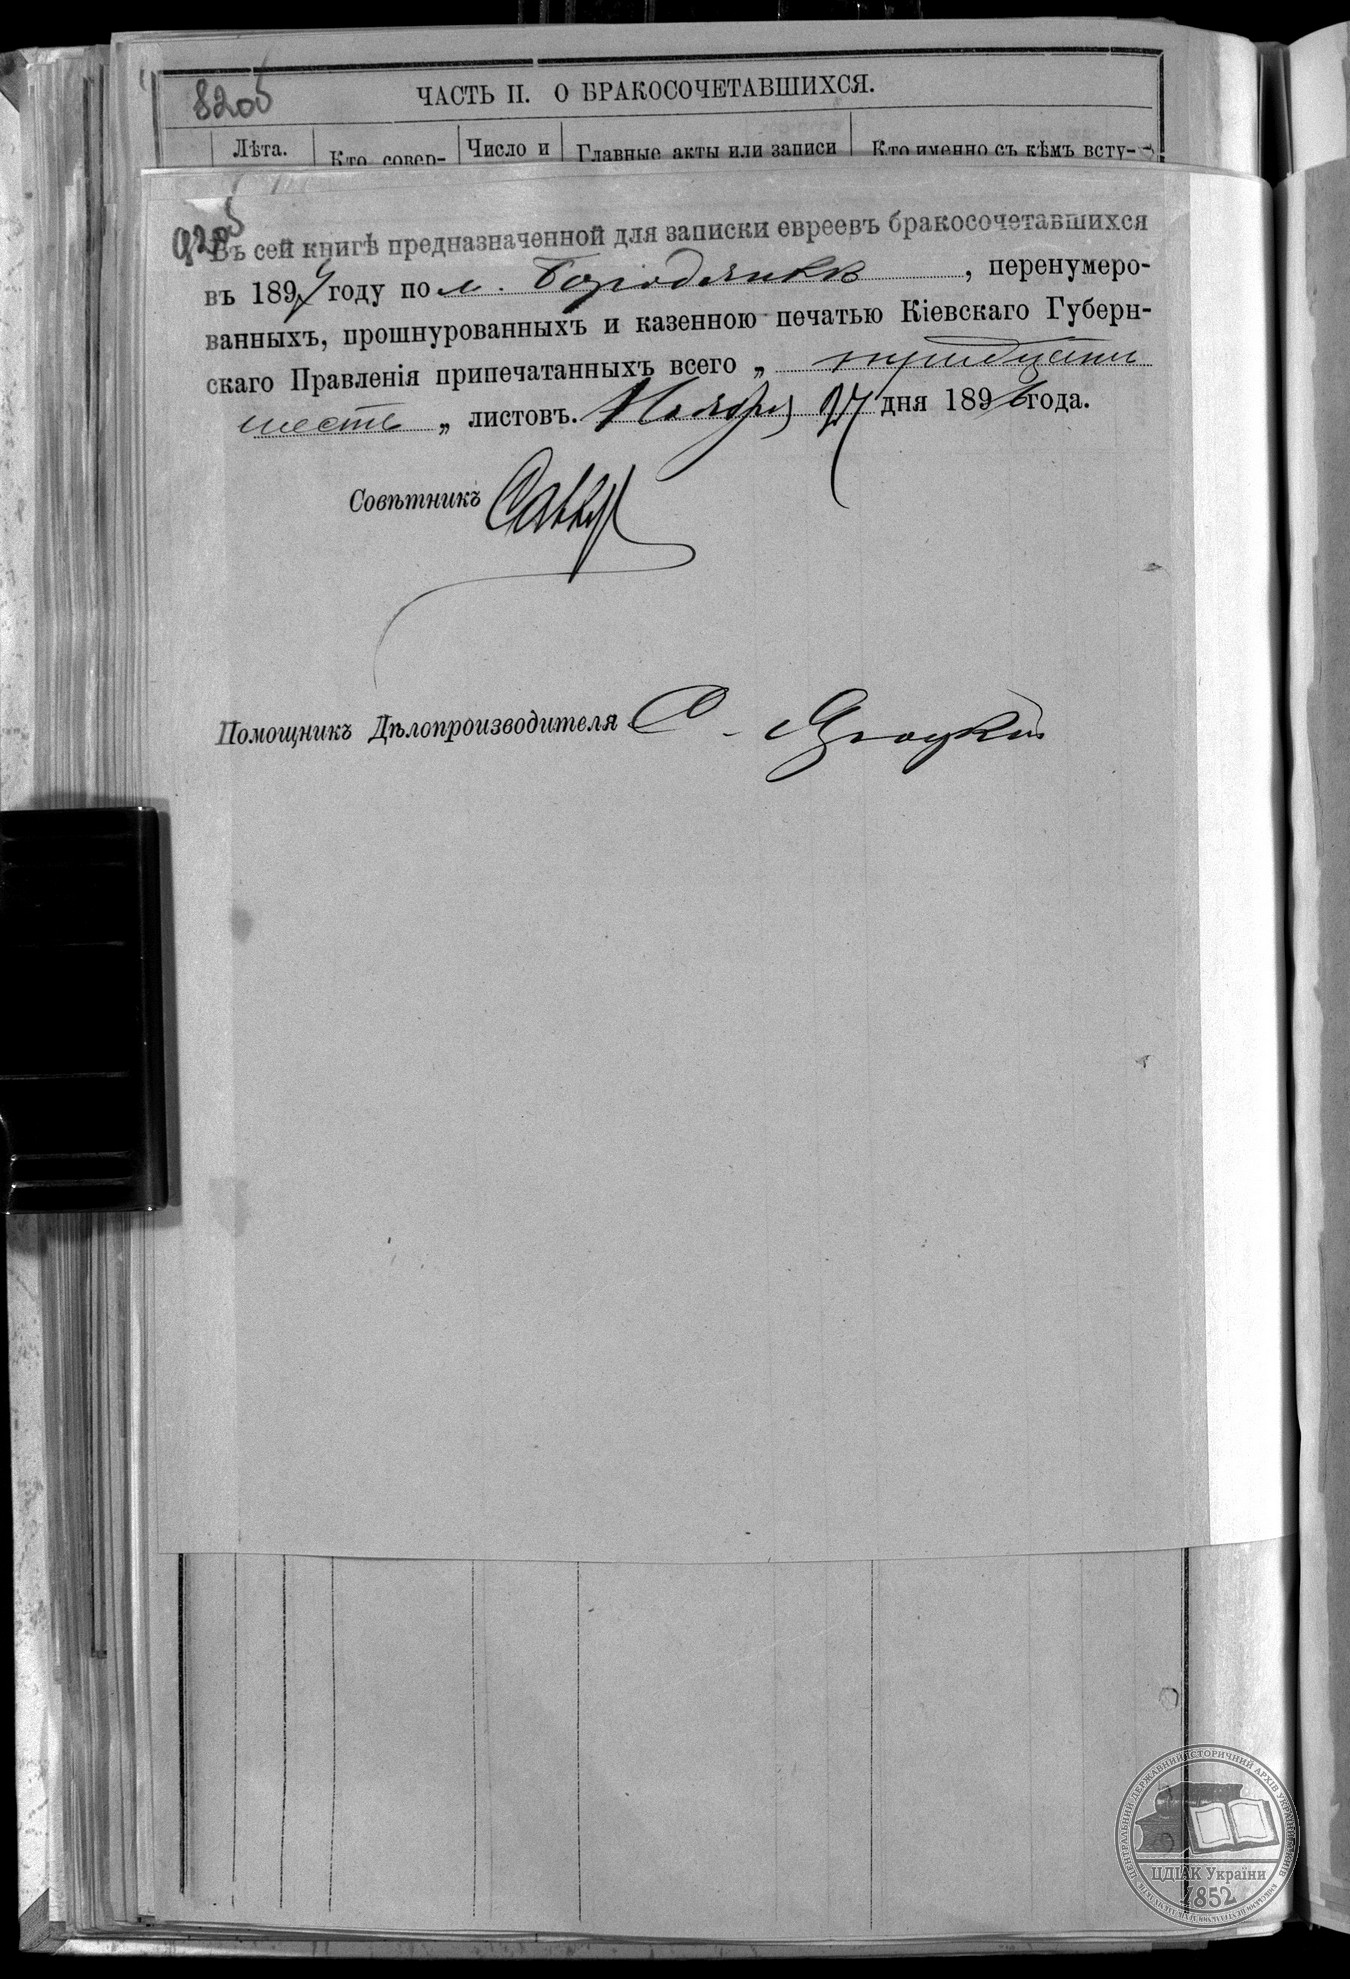 820б
ЧАСТЬ II. О БРАКОСОЧЕТАВШИХСЯ.
Лѣта. Кто совер- Число и Главные акты или записи Кто именно съ кѣмъ всту-
Въ сей книгѣ предназначенной для записки евреевъ бракосочетавшихся
въ 1897 году по м. Бородянкѣ, перенумеро-
ванныхъ, прошнурованныхъ и казенною печатью Кіевскаго Губерн-
скаго Правленія припечатанныхъ всего „ тридцать
шесть „ листовъ. Ноября 27 дня 1896 года.
Совѣтникъ
Помощникъ Дѣлопроизводителя
ЦЕНТРАЛЬНИЙ ДЕРЖАВНИЙ ІСТОРИЧНИЙ АРХІВ УКРАЇНИ
ЦДІАК України
1852